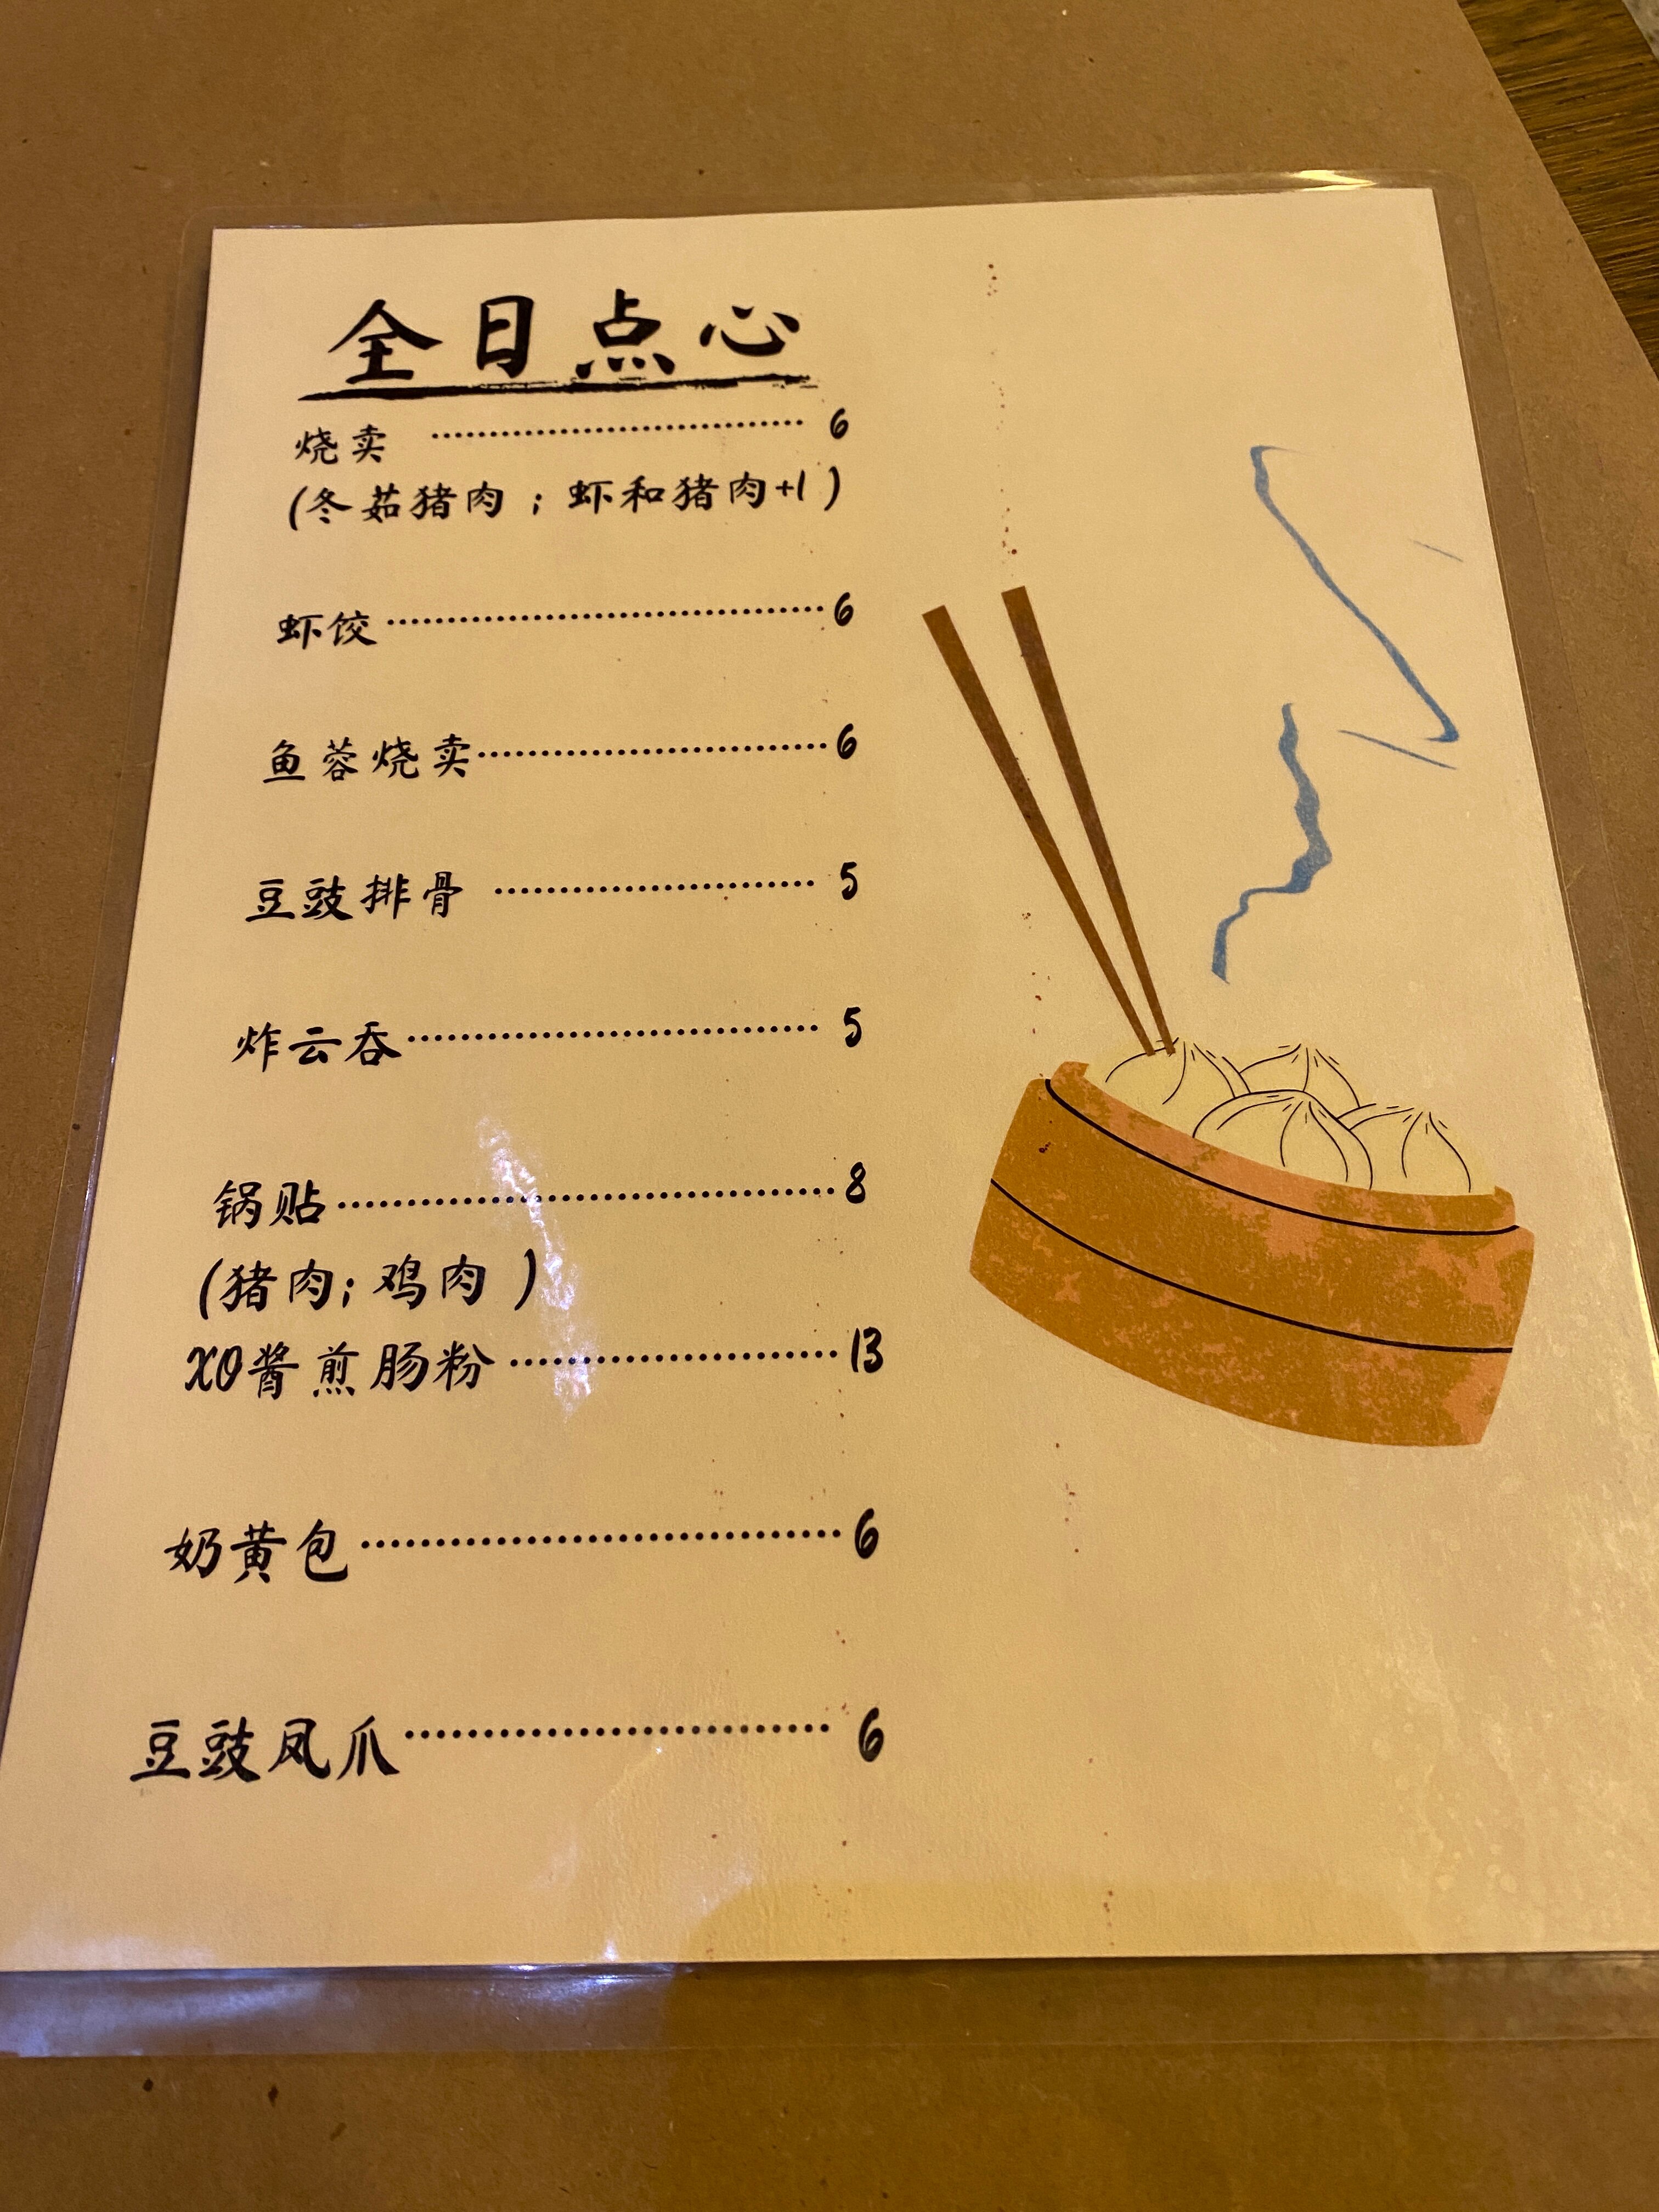 全日点心
烧卖 ........................................ 6
(冬茹猪肉 ; 虾和猪肉+1 )
虾饺 ........................................ 6
鱼蓉烧卖 ........................................ 6
豆豉排骨 ........................................ 5
炸云吞 ........................................ 5
锅贴 ........................................ 8
(猪肉; 鸡肉 )
XO酱煎肠粉 ........................................ 13
奶黄包 ........................................ 6
豆豉凤爪 ........................................ 6